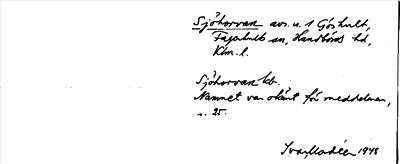 Sjöhorvan avs. u. 1 Göshult,
Fagerhults sn, Handbörds hd,
Klm. l.
Sjöhorvan kb.
Namnet var okänt för meddelaren,
u. 25.
Ivar Modéer 1948